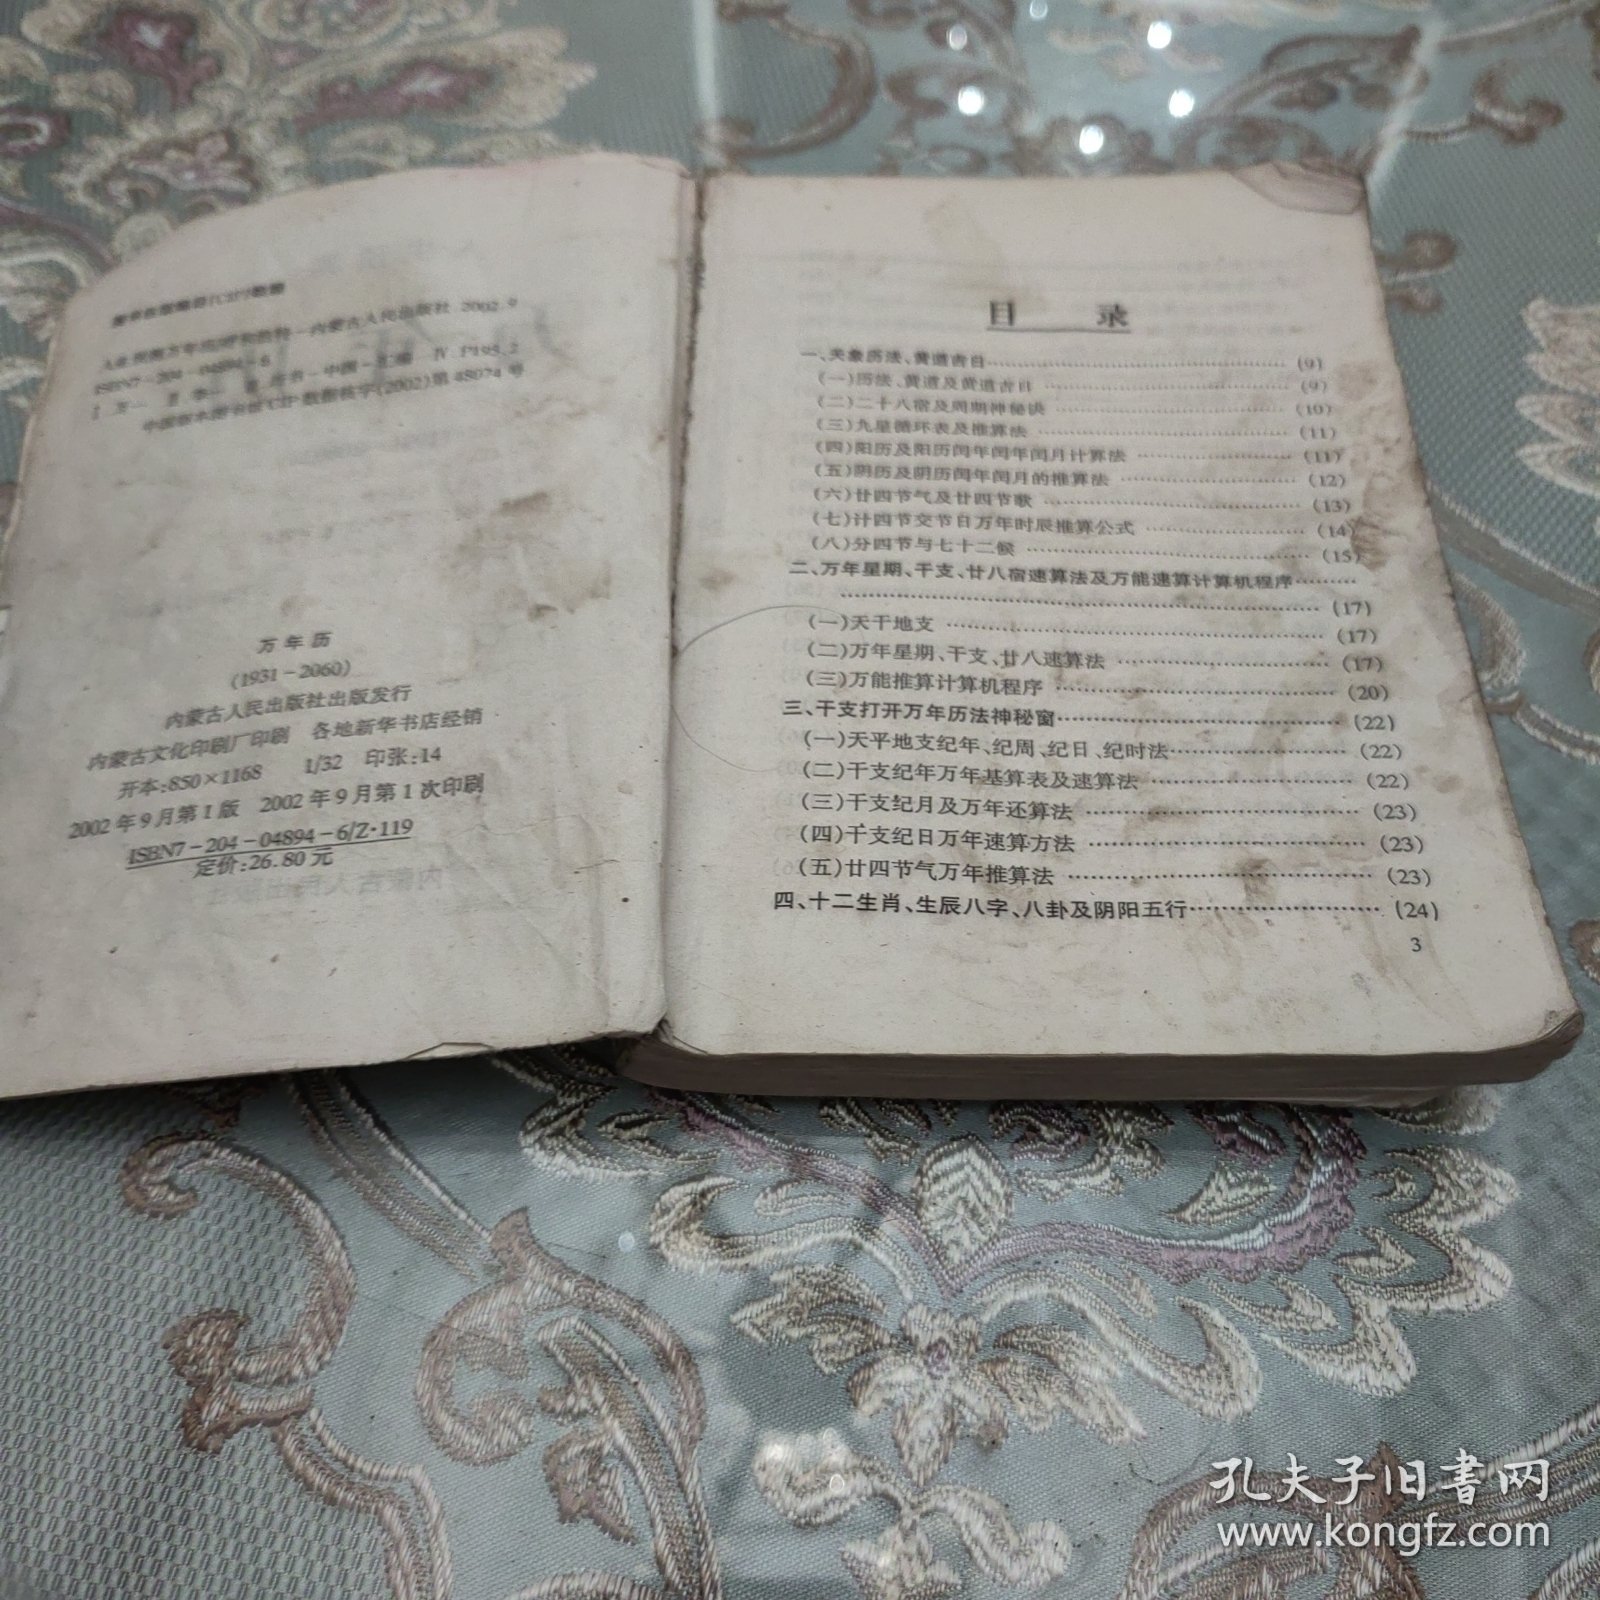 图书在版编目(CIP)数据
内蒙古人民出版社 2002.9
ISBN7-204-04894-6
中国版本图书馆CIP数据核字(2002)第45074号
万年历
(1931-2060)
内蒙古人民出版社出版发行
内蒙古文化印刷厂印刷 各地新华书店经销
开本:850×1168 1/32 印张:14
2002年9月第1版 2002年9月第1次印刷
ISBN7-204-04894-6/Z·119
定价:26.80元
目 录
一、天象历法、黄道吉日……(9)
(一)历法、黄道及黄道吉日……(9)
(二)二十八宿及周期神秘诀……(10)
(三)九星循环表及推算法……(11)
(四)阳历及阳历闰年闰年闰月计算法……(11)
(五)阴历及阴历闰年闰月的推算法……(12)
(六)廿四节气及廿四节歌……(13)
(七)计四节交节日万年时辰推算公式……(14)
(八)分四节与七十二候……(15)
二、万年星期、干支、廿八宿速算法及万能速算计算机程序……
……(17)
(一)天干地支……(17)
(二)万年星期、干支、廿八速算法……(17)
(三)万能推算计算机程序……(20)
三、干支打开万年历法神秘窗……(22)
(一)天平地支纪年、纪周、纪日、纪时法……(22)
(二)干支纪年万年基算表及速算法……(22)
(三)干支纪月及万年还算法……(23)
(四)干支纪日万年速算方法……(23)
(五)廿四节气万年推算法……(23)
四、十二生肖、生辰八字、八卦及阴阳五行……(24)
3
孔夫子旧书网
www.kongfz.com